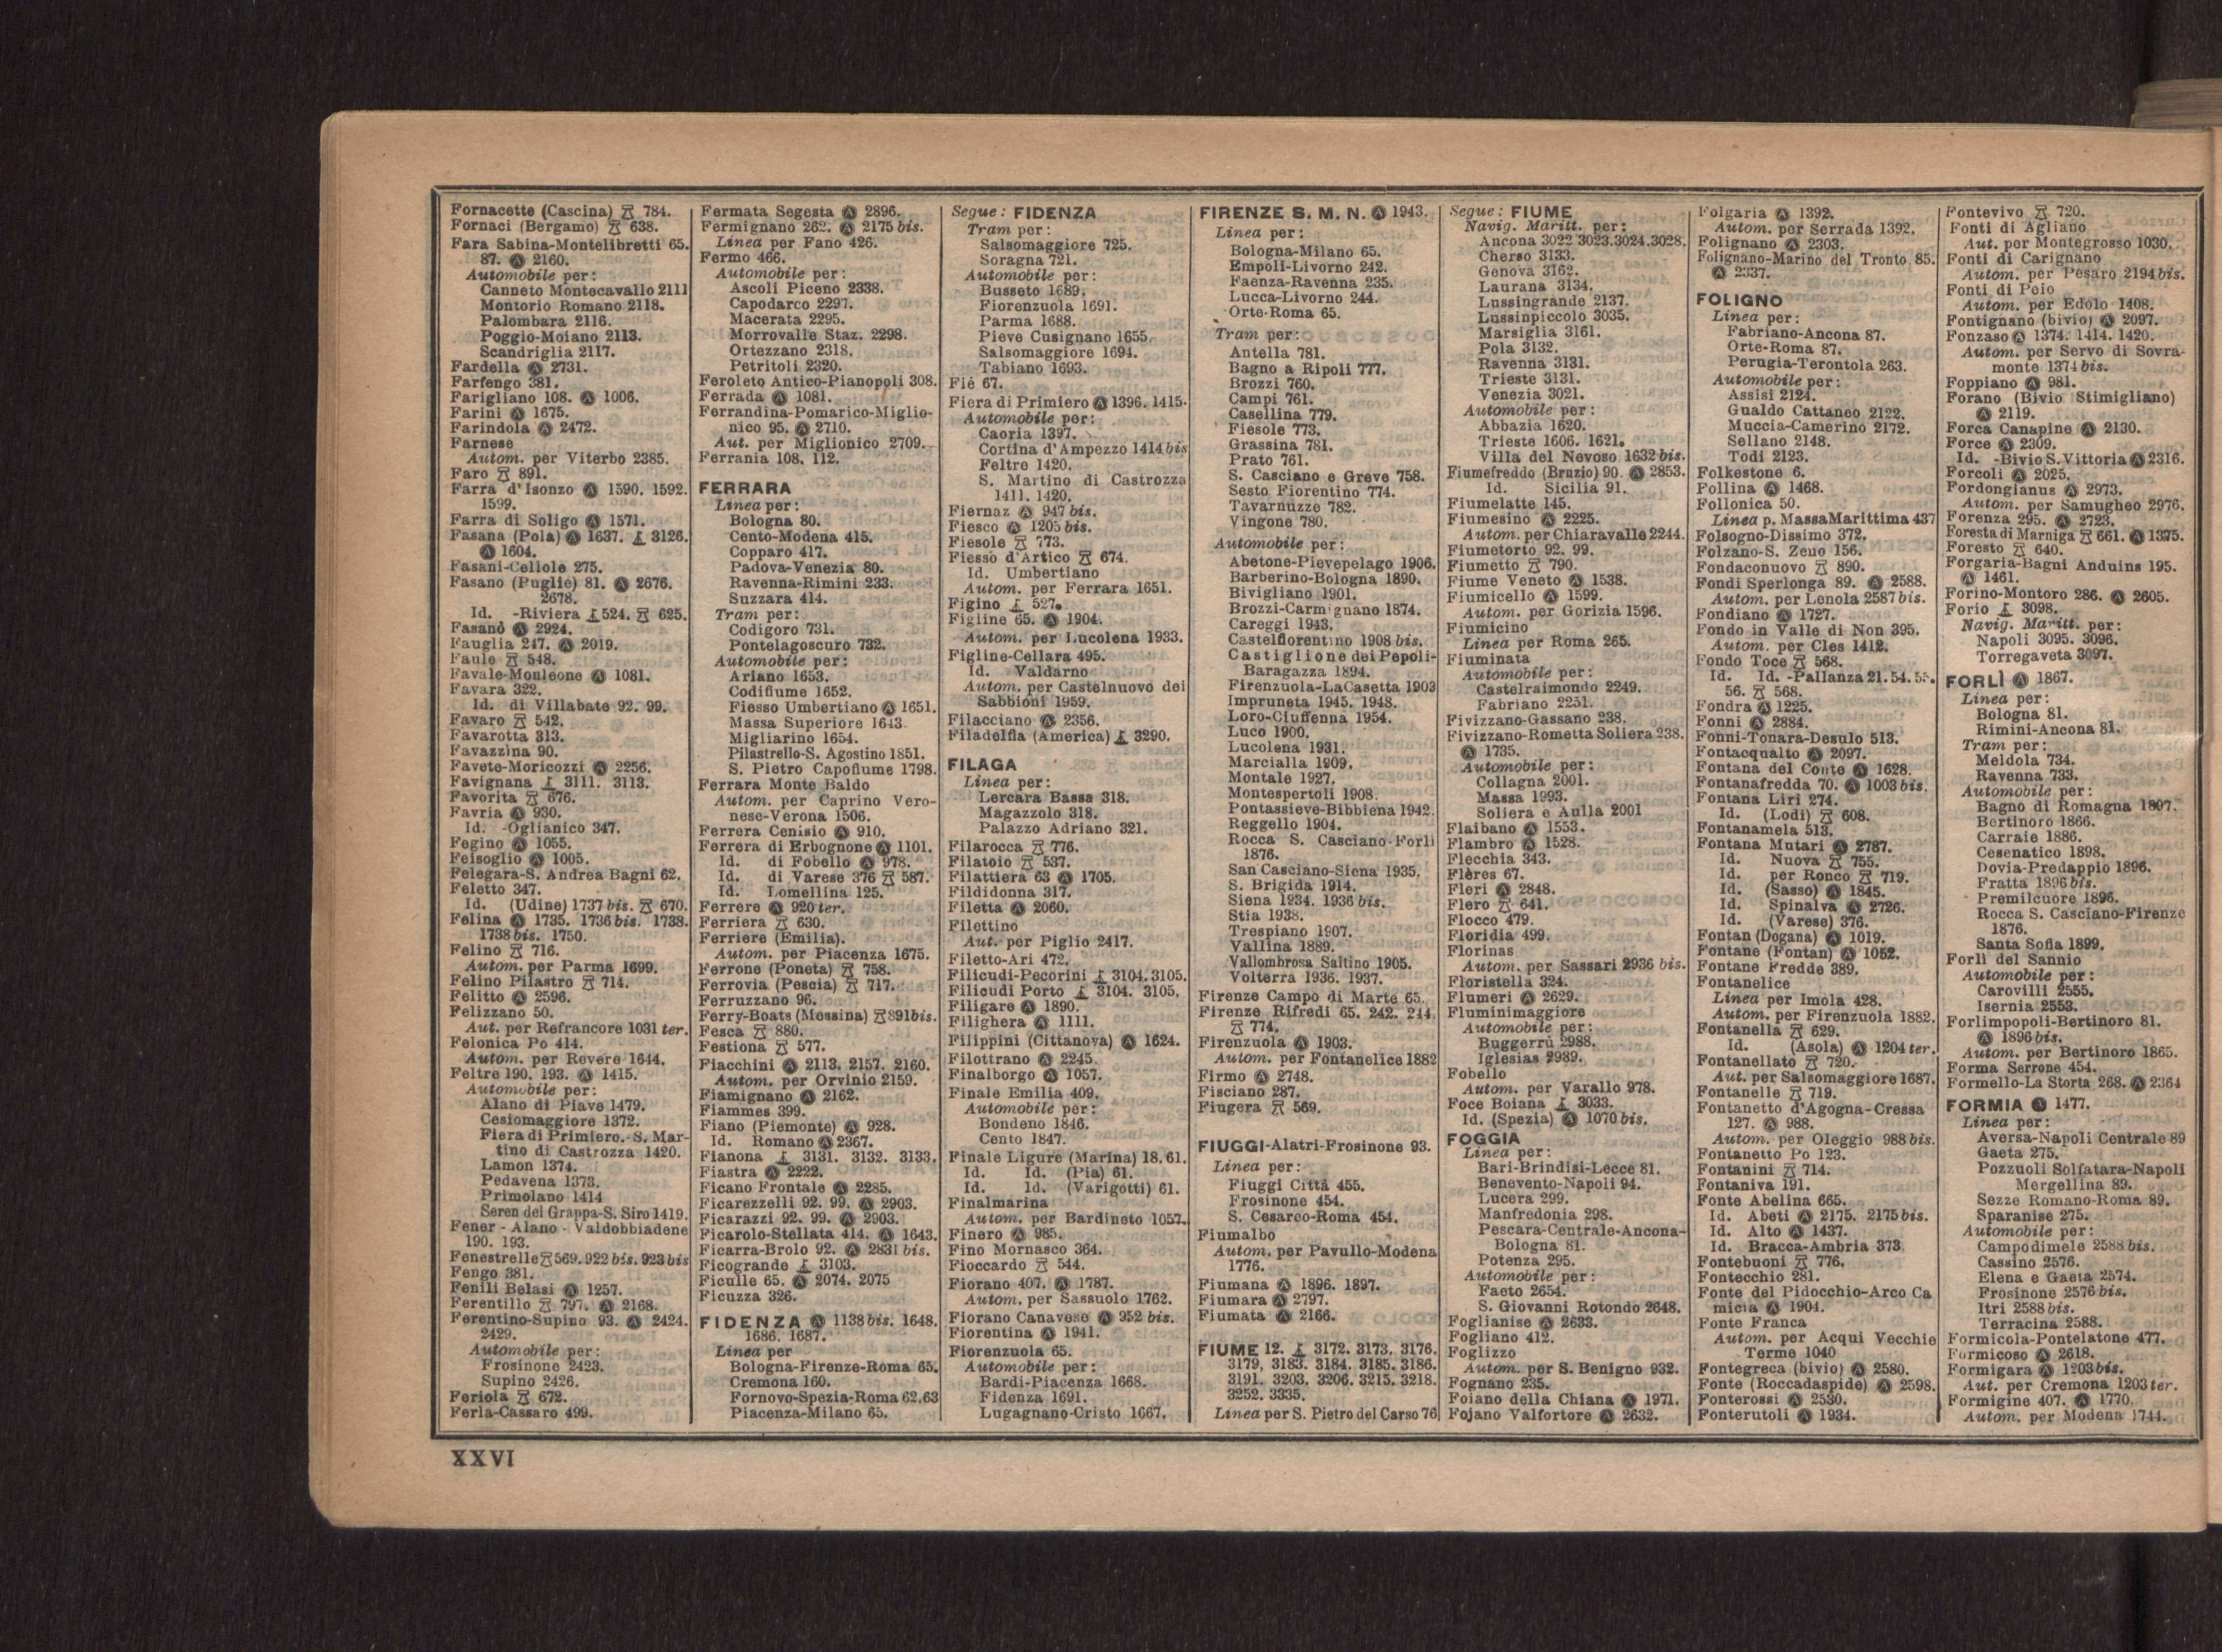 Fornacette (Cascina) 784.
Fornaci (Bergamo) 638.
Fara Sabina-Montelibretti 65.
87. Ⓐ 2160.
Automobile per:
Canneto Montecavallo 2111
Montorio Romano 2118.
Palombara 2116.
Poggio-Moiano 2113.
Scandriglia 2117.
Fardella Ⓐ 2731.
Farfengo 381.
Farigliano 108. Ⓐ 1006.
Farini Ⓐ 1675.
Farindola Ⓐ 2472.
Farnese
Autom. per Viterbo 2385.
Faro 891.
Farra d'Isonzo Ⓐ 1590. 1592.
1599.
Farra di Soligo Ⓐ 1571.
Fasana (Pola) Ⓐ 1637. 3126.
Ⓐ 1604.
Fasani-Cellole 275.
Fasano (Puglie) 81. Ⓐ 2676.
2678.
Id. -Riviera 524. 625.
Fasanò Ⓐ 2924.
Fauglia 247. Ⓐ 2019.
Faule 548.
Favale-Monleone Ⓐ 1081.
Favara 322.
Id. di Villabate 92. 99.
Favaro 542.
Favarotta 313.
Favazzina 90.
Faveto-Moricozzi Ⓐ 2256.
Favignana 3111. 3113.
Favorita 676.
Favria Ⓐ 930.
Id. -Oglianico 347.
Fegino Ⓐ 1055.
Feisoglio Ⓐ 1005.
Felegara-S. Andrea Bagni 62.
Feletto 347.
Id. (Udine) 1737 bis. 670.
Felina Ⓐ 1735. 1736 bis. 1738.
1738 bis. 1750.
Felino 716.
Autom. per Parma 1699.
Felino Pilastro 714.
Felitto Ⓐ 2596.
Felizzano 50.
Aut. per Refrancore 1031 ter.
Felonica Po 414.
Autom. per Revere 1644.
Feltre 190. 193. Ⓐ 1415.
Automobile per:
Alano di Piave 1479.
Cesiomaggiore 1372.
Fiera di Primiero.-S. Mar-
tino di Castrozza 1420.
Lamon 1374.
Pedavena 1373.
Primolano 1414
Seren del Grappa-S. Siro 1419.
Fener - Alano - Valdobbiadene
190. 193.
Fenestrelle 569. 922 bis. 923 bis
Fengo 381.
Fenili Belasi Ⓐ 1257.
Ferentillo 797. Ⓐ 2168.
Ferentino-Supino 93. Ⓐ 2424.
2429.
Automobile per:
Frosinone 2423.
Supino 2426.
Feriola 672.
Ferla-Cassaro 499.
Fermata Segesta Ⓐ 2896.
Fermignano 262. Ⓐ 2175 bis.
Linea per Fano 426.
Fermo 466.
Automobile per:
Ascoli Piceno 2338.
Capodarco 2297.
Macerata 2295.
Morrovalle Staz. 2298.
Ortezzano 2318.
Petritoli 2320.
Feroleto Antico-Pianopoli 308.
Ferrada Ⓐ 1081.
Ferrandina-Pomarico-Miglio-
nico 95. Ⓐ 2710.
Aut. per Miglionico 2709.
Ferrania 108. 112.
FERRARA
Linea per:
Bologna 80.
Cento-Modena 415.
Copparo 417.
Padova-Venezia 80.
Ravenna-Rimini 233.
Suzzara 414.
Tram per:
Codigoro 731.
Pontelagoscuro 732.
Automobile per:
Ariano 1653.
Codifiume 1652.
Fiesso Umbertiano Ⓐ 1651.
Massa Superiore 1643.
Migliarino 1654.
Pilastrello-S. Agostino 1851.
S. Pietro Capofiume 1798.
Ferrara Monte Baldo
Autom. per Caprino Vero-
nese-Verona 1506.
Ferrera Cenisio Ⓐ 910.
Ferrera di Erbognone Ⓐ 1101.
Id. di Fobello Ⓐ 978.
Id. di Varese 376 587.
Id. Lomellina 125.
Ferrere Ⓐ 920 ter.
Ferriera 630.
Ferriere (Emilia).
Autom. per Piacenza 1675.
Ferrone (Poneta) 758.
Ferrovia (Pescia) 717.
Ferruzzano 96.
Ferry-Boats (Messina) 891 bis.
Fesca 880.
Festiona 577.
Fiacchini Ⓐ 2113. 2157. 2160.
Autom. per Orvinio 2159.
Fiamignano Ⓐ 2162.
Fiammes 399.
Fiano (Piemonte) Ⓐ 928.
Id. Romano Ⓐ 2367.
Fianona 3131. 3132. 3133.
Fiastra Ⓐ 2222.
Ficano Frontale Ⓐ 2285.
Ficarezzelli 92. 99. Ⓐ 2903.
Ficarazzi 92. 99. Ⓐ 2903.
Ficarolo-Stellata 414. Ⓐ 1643.
Ficarra-Brolo 92. Ⓐ 2831 bis.
Ficogrande 3103.
Ficulle 65. Ⓐ 2074. 2075
Ficuzza 326.
FIDENZA Ⓐ 1138 bis. 1648.
1686. 1687.
Linea per
Bologna-Firenze-Roma 65.
Cremona 160.
Fornovo-Spezia-Roma 62.63
Piacenza-Milano 65.
Segue: FIDENZA
Tram per:
Salsomaggiore 725.
Soragna 721.
Automobile per:
Busseto 1689.
Fiorenzuola 1691.
Parma 1688.
Pieve Cusignano 1655.
Salsomaggiore 1694.
Tabiano 1693.
Fiè 67.
Fiera di Primiero Ⓐ 1396. 1415.
Automobile per:
Caoria 1397.
Cortina d'Ampezzo 1414 bis
Feltre 1420.
S. Martino di Castrozza
1411. 1420.
Fiernaz Ⓐ 947 bis.
Fiesco Ⓐ 1205 bis.
Fiesole 773.
Fiesso d'Artico 674.
Id. Umbertiano
Autom. per Ferrara 1651.
Figino 527.
Figline 65. Ⓐ 1904.
Autom. per Lucolena 1933.
Figline-Cellara 495.
Id. Valdarno
Autom. per Castelnuovo dei
Sabbioni 1959.
Filacciano Ⓐ 2356.
Filadelfia (America) 3290.
FILAGA
Linea per:
Lercara Bassa 318.
Magazzolo 318.
Palazzo Adriano 321.
Filarocca 776.
Filatoio 537.
Filattiera 63 Ⓐ 1705.
Fildidonna 317.
Filetta Ⓐ 2060.
Filettino
Aut. per Piglio 2417.
Filetto-Ari 472.
Filicudi-Pecorini 3104. 3105.
Filicudi Porto 3104. 3105.
Filigare Ⓐ 1890.
Filighera Ⓐ 1111.
Filippini (Cittanova) Ⓐ 1624.
Filottrano Ⓐ 2245.
Finalborgo Ⓐ 1057.
Finale Emilia 409.
Automobile per:
Bondeno 1846.
Cento 1847.
Finale Ligure (Marina) 18. 61.
Id. Id. (Pia) 61.
Id. Id. (Varigotti) 61.
Finalmarina
Autom. per Bardineto 1057.
Finero Ⓐ 985.
Fino Mornasco 364.
Fioccardo 544.
Fiorano 407. Ⓐ 1787.
Autom. per Sassuolo 1762.
Fiorano Canavese Ⓐ 952 bis.
Fiorentina Ⓐ 1941.
Fiorenzuola 65.
Automobile per:
Bardi-Piacenza 1668.
Fidenza 1691.
Lugagnano-Cristo 1667.
FIRENZE S. M. N. Ⓐ 1943.
Linea per:
Bologna-Milano 65.
Empoli-Livorno 242.
Faenza-Ravenna 235.
Lucca-Livorno 244.
Orte-Roma 65.
Tram per:
Antella 781.
Bagno a Ripoli 777.
Brozzi 760.
Campi 761.
Casellina 779.
Fiesole 773.
Grassina 781.
Prato 761.
S. Casciano e Greve 758.
Sesto Fiorentino 774.
Tavarnuzze 782.
Vingone 780.
Automobile per:
Abetone-Pievepelago 1906.
Barberino-Bologna 1890.
Bivigliano 1901.
Brozzi-Carmignano 1874.
Careggi 1943.
Castelfiorentino 1908 bis.
Castiglione dei Pepoli-
Baragazza 1894.
Firenzuola-La Casetta 1903
Impruneta 1945. 1948.
Loro-Ciuffenna 1954.
Luco 1900.
Lucolena 1931.
Marcialla 1909.
Montale 1927.
Montespertoli 1908.
Pontassieve-Bibbiena 1942.
Reggello 1904.
Rocca S. Casciano-Forlì
1876.
San Casciano-Siena 1935.
S. Brigida 1914.
Siena 1934. 1936 bis.
Stia 1938.
Trespiano 1907.
Vallina 1889.
Vallombrosa Saltino 1905.
Volterra 1936. 1937.
Firenze Campo di Marte 65.
Firenze Rifredi 65. 242. 244
774.
Firenzuola Ⓐ 1903.
Autom. per Fontanelice 1882
Firmo Ⓐ 2748.
Fisciano 287.
Fiugera 569.
FIUGGI-Alatri-Frosinone 93.
Linea per:
Fiuggi Città 455.
Frosinone 454.
S. Cesareo-Roma 454.
Fiumalbo
Autom. per Pavullo-Modena
1776.
Fiumana Ⓐ 1896. 1897.
Fiumara Ⓐ 2797.
Fiumata Ⓐ 2166.
FIUME 12. 3172. 3173. 3176.
3179. 3183. 3184. 3185. 3186.
3191. 3203. 3206. 3215. 3218.
3252. 3335.
Linea per S. Pietro del Carso 76
Segue: FIUME
Navig. Maritt. per:
Ancona 3022 3023.3024.3028.
Cherso 3133.
Genova 3162.
Laurana 3134.
Lussingrande 2137.
Lussinpiccolo 3035.
Marsiglia 3161.
Pola 3132.
Ravenna 3131.
Trieste 3131.
Venezia 3021.
Automobile per:
Abbazia 1620.
Trieste 1606. 1621.
Villa del Nevoso 1632 bis.
Fiumefreddo (Bruzio) 90. Ⓐ 2853.
Id. Sicilia 91.
Fiumelatte 145.
Fiumesino Ⓐ 2225.
Autom. per Chiaravalle 2244.
Fiumetorto 92. 99.
Fiumetto 790.
Fiume Veneto Ⓐ 1538.
Fiumicello Ⓐ 1599.
Autom. per Gorizia 1596.
Fiumicino
Linea per Roma 265.
Fiuminata
Automobile per:
Castelraimondo 2249.
Fabriano 2251.
Fivizzano-Gassano 238.
Fivizzano-Rometta Soliera 238.
Ⓐ 1735.
Automobile per:
Collagna 2001.
Massa 1993.
Soliera e Aulla 2001
Flaibano Ⓐ 1553.
Flambro Ⓐ 1528.
Flecchia 343.
Flères 67.
Fleri Ⓐ 2848.
Flero 641.
Flocco 479.
Floridia 499.
Florinas
Autom. per Sassari 2936 bis.
Floristella 324.
Flumeri Ⓐ 2629.
Fluminimaggiore
Automobile per:
Buggerrù 2988.
Iglesias 2989.
Fobello
Autom. per Varallo 978.
Foce Boiana 3033.
Id. (Spezia) Ⓐ 1070 bis.
FOGGIA
Linea per:
Bari-Brindisi-Lecce 81.
Benevento-Napoli 94.
Lucera 299.
Manfredonia 298.
Pescara-Centrale-Ancona-
Bologna 81.
Potenza 295.
Automobile per:
Faeto 2654.
S. Giovanni Rotondo 2648.
Foglianise Ⓐ 2633.
Fogliano 412.
Foglizzo
Autom. per S. Benigno 932.
Fognano 235.
Foiano della Chiana Ⓐ 1971.
Fojano Valfortore Ⓐ 2632.
Folgaria Ⓐ 1392.
Autom. per Serrada 1392.
Folignano Ⓐ 2303.
Folignano-Marino del Tronto 85.
Ⓐ 2337.
FOLIGNO
Linea per:
Fabriano-Ancona 87.
Orte-Roma 87.
Perugia-Terontola 263.
Automobile per:
Assisi 2124.
Gualdo Cattaneo 2122.
Muccia-Camerino 2172.
Sellano 2148.
Todi 2123.
Folkestone 6.
Pollina Ⓐ 1468.
Follonica 50.
Linea p. Massa Marittima 437
Folsogno-Dissimo 372.
Folzano-S. Zeno 156.
Fondaconuovo 890.
Fondi Sperlonga 89. Ⓐ 2588.
Autom. per Lenola 2587 bis.
Fondiano Ⓐ 1727.
Fondo in Valle di Non 395.
Autom. per Cles 1412.
Fondo Toce 568.
Id. Id. -Pallanza 21. 54. 55.
56. 568.
Fondra Ⓐ 1225.
Fonni Ⓐ 2884.
Fonni-Tonara-Desulo 513.
Fontacqualto Ⓐ 2097.
Fontana del Conte Ⓐ 1628.
Fontanafredda 70. Ⓐ 1003 bis.
Fontana Liri 274.
Id. (Lodi) 608.
Fontanamela 513.
Fontana Mutari Ⓐ 2787.
Id. Nuova 755.
Id. per Ronco 719.
Id. (Sasso) Ⓐ 1845.
Id. Spinalva Ⓐ 2726.
Id. (Varese) 376.
Fontan (Dogana) Ⓐ 1019.
Fontane (Fontan) Ⓐ 1052.
Fontane Fredde 389.
Fontanelice
Linea per Imola 428.
Autom. per Firenzuola 1882.
Fontanella 629.
Id. (Asola) Ⓐ 1204 ter.
Fontanellato 720.
Aut. per Salsomaggiore 1687.
Fontanelle 719.
Fontanetto d'Agogna-Cressa
127. Ⓐ 988.
Autom. per Oleggio 988 bis.
Fontanetto Po 123.
Fontanini 714.
Fontaniva 191.
Fonte Abelina 665.
Id. Abeti Ⓐ 2175. 2175 bis.
Id. Alto Ⓐ 1437.
Id. Bracca-Ambria 373
Fontebuoni 776.
Fontecchio 281.
Fonte del Pidocchio-Arco Ca
micia Ⓐ 1904.
Fonte Franca
Autom. per Acqui Vecchie
Terme 1040
Fontegreca (bivio) Ⓐ 2580.
Fonte (Roccadaspide) Ⓐ 2598.
Fonterossi Ⓐ 2530.
Fonterutoli Ⓐ 1934.
Fontevivo 720.
Fonti di Agliano
Aut. per Montegrosso 1030.
Fonti di Carignano
Autom. per Pesaro 2194 bis.
Fonti di Peio
Autom. per Edolo 1408.
Fontignano (bivio) Ⓐ 2097.
Fonzaso Ⓐ 1374. 1414. 1420.
Autom. per Servo di Sovra-
monte 1374 bis.
Foppiano Ⓐ 981.
Forano (Bivio Stimigliano)
Ⓐ 2119.
Forca Canapine Ⓐ 2130.
Force Ⓐ 2309.
Id. -Bivio S. Vittoria Ⓐ 2316.
Forcoli Ⓐ 2025.
Fordongianus Ⓐ 2973.
Autom. per Samugheo 2976.
Forenza 295. Ⓐ 2723.
Foresta di Marniga 661. Ⓐ 1375.
Foresto 640.
Forgaria-Bagni Anduins 195.
Ⓐ 1461.
Forino-Montoro 286. Ⓐ 2605.
Forio 3098.
Navig. Maritt. per:
Napoli 3095. 3096.
Torregaveta 3097.
FORLÌ Ⓐ 1867.
Linea per:
Bologna 81.
Rimini-Ancona 81.
Tram per:
Meldola 734.
Ravenna 733.
Automobile per:
Bagno di Romagna 1897.
Bertinoro 1866.
Carraie 1886.
Cesenatico 1898.
Dovia-Predappio 1896.
Fratta 1896 bis.
Premilcuore 1896.
Rocca S. Casciano-Firenze
1876.
Santa Sofia 1899.
Forlì del Sannio
Automobile per:
Carovilli 2555.
Isernia 2553.
Forlimpopoli-Bertinoro 81.
Ⓐ 1896 bis.
Autom. per Bertinoro 1865.
Forma Serrone 454.
Formello-La Storta 268. Ⓐ 2364
FORMIA Ⓐ 1477.
Linea per:
Aversa-Napoli Centrale 89
Gaeta 275.
Pozzuoli Solfatara-Napoli
Mergellina 89.
Sezze Romano-Roma 89.
Sparanise 275.
Automobile per:
Campodimele 2588 bis.
Cassino 2576.
Elena e Gaeta 2574.
Frosinone 2576 bis.
Itri 2588 bis.
Terracina 2588.
Formicola-Pontelatone 477.
Formicoso Ⓐ 2618.
Formigara Ⓐ 1203 bis.
Aut. per Cremona 1203 ter.
Formigine 407. Ⓐ 1770.
Autom. per Modena 1744.
XXVI